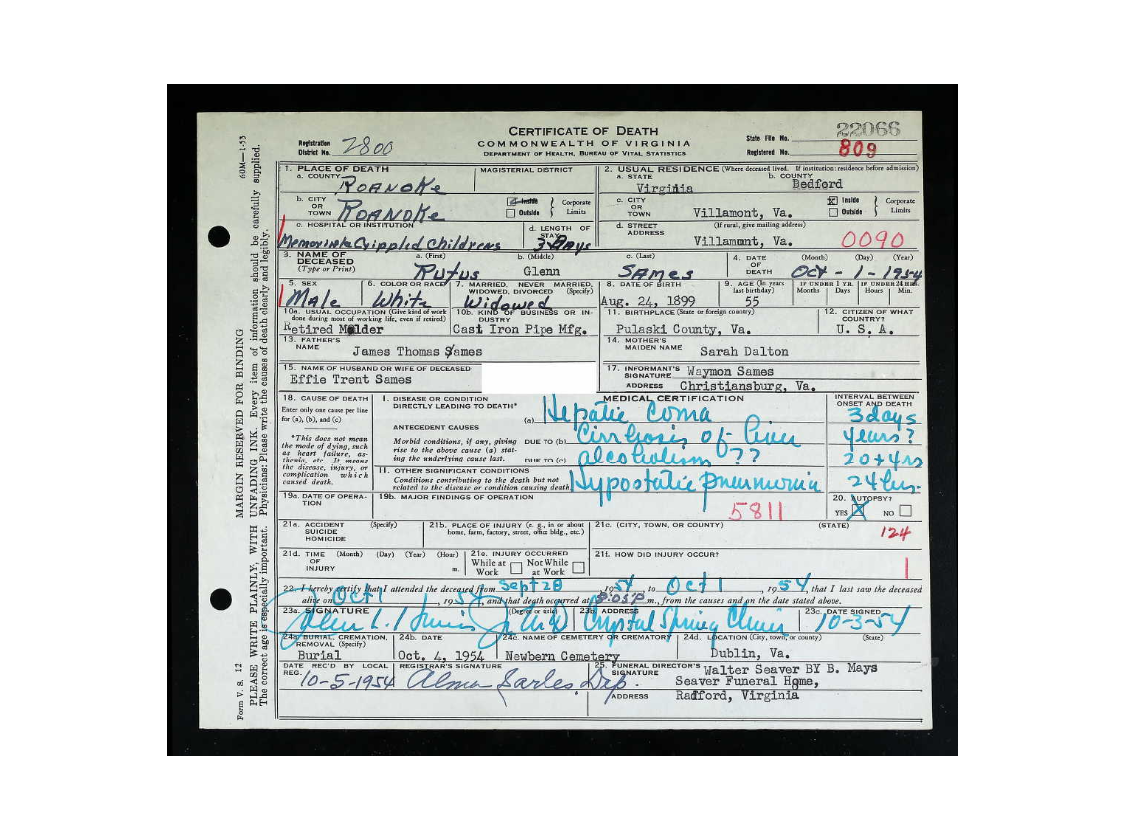 CERTIFICATE OF DEATH
COMMONWEALTH OF VIRGINIA
DEPARTMENT OF HEALTH, BUREAU OF VITAL STATISTICS
Registration District No. 2800
State File No. 22066
Registered No. 809
1. PLACE OF DEATH
a. COUNTY ROANOKE
MAGISTERIAL DISTRICT
2. USUAL RESIDENCE (Where deceased lived. If institution: residence before admission)
a. STATE Virginia
b. COUNTY Bedford
b. CITY OR TOWN ROANOKE
Inside Outside Corporate Limits
c. CITY OR TOWN Villamont, Va.
Inside Outside Corporate Limits
c. HOSPITAL OR INSTITUTION Memorial & Crippled Childrens
d. LENGTH OF STAY 3 Days
d. STREET ADDRESS (If rural, give mailing address)
Villamont, Va. 0090
3. NAME OF DECEASED (Type or Print)
a. (First) Rufus
b. (Middle) Glenn
c. (Last) SAMES
4. DATE OF DEATH (Month) (Day) (Year)
Oct - 1 - 1954
5. SEX Male
6. COLOR OR RACE White
7. MARRIED, NEVER MARRIED, WIDOWED, DIVORCED (Specify) Widowed
8. DATE OF BIRTH Aug. 24, 1899
9. AGE (In years last birthday) 55
IF UNDER 1 YR. Months Days
IF UNDER 24 HRS. Hours Min.
10a. USUAL OCCUPATION (Give kind of work done during most of working life, even if retired)
Retired Molder
10b. KIND OF BUSINESS OR INDUSTRY
Cast Iron Pipe Mfg.
11. BIRTHPLACE (State or foreign country)
Pulaski County, Va.
12. CITIZEN OF WHAT COUNTRY?
U. S. A.
13. FATHER'S NAME
James Thomas Sames
14. MOTHER'S MAIDEN NAME
Sarah Dalton
15. NAME OF HUSBAND OR WIFE OF DECEASED
Effie Trent Sames
17. INFORMANT'S SIGNATURE Waymon Sames
ADDRESS Christiansburg, Va.
18. CAUSE OF DEATH
Enter only one cause per line for (a), (b), and (c)
*This does not mean the mode of dying, such as heart failure, asthenia, etc. It means the disease, injury, or complication which caused death.
MEDICAL CERTIFICATION
INTERVAL BETWEEN ONSET AND DEATH
I. DISEASE OR CONDITION DIRECTLY LEADING TO DEATH*
(a) Hepatic Coma 3 days
ANTECEDENT CAUSES
Morbid conditions, if any, giving rise to the above cause (a) stating the underlying cause last.
DUE TO (b) Cirrhosis of liver years?
DUE TO (c) alcoholism ?? 20+ yrs
II. OTHER SIGNIFICANT CONDITIONS
Conditions contributing to the death but not related to the disease or condition causing death.
Hypostatic pneumonia 24 hrs.
19a. DATE OF OPERATION
19b. MAJOR FINDINGS OF OPERATION
5811
20. AUTOPSY?
YES X NO
21a. ACCIDENT SUICIDE HOMICIDE (Specify)
21b. PLACE OF INJURY (e. g., in or about home, farm, factory, street, office bldg., etc.)
21c. (CITY, TOWN, OR COUNTY) (STATE)
124
21d. TIME OF INJURY (Month) (Day) (Year) (Hour) m.
21e. INJURY OCCURRED
While at Work Not While at Work
21f. HOW DID INJURY OCCUR?
1
22. I hereby certify that I attended the deceased from Sept 28, 1954, to Oct 1, 1954, that I last saw the deceased
alive on Oct 1, 1954, and that death occurred at 5:05P m., from the causes and on the date stated above.
23a. SIGNATURE (Degree or title)
23b. ADDRESS Crystal Spring Clinic
23c. DATE SIGNED 10-3-54
24a. BURIAL, CREMATION, REMOVAL (Specify)
Burial
24b. DATE
Oct. 4, 1954
24c. NAME OF CEMETERY OR CREMATORY
Newbern Cemetery
24d. LOCATION (City, town, or county) (State)
Dublin, Va.
DATE REC'D BY LOCAL REG.
10-5-1954
REGISTRAR'S SIGNATURE
Alma Sarles Dep.
25. FUNERAL DIRECTOR'S SIGNATURE Walter Seaver BY B. Mays
Seaver Funeral Home,
ADDRESS Radford, Virginia
Form V. S. 12
60M—1-53
MARGIN RESERVED FOR BINDING
PLEASE WRITE PLAINLY, WITH UNFADING INK. Every item of information should be carefully supplied.
The correct age is especially important. Physicians: Please write the causes of death clearly and legibly.